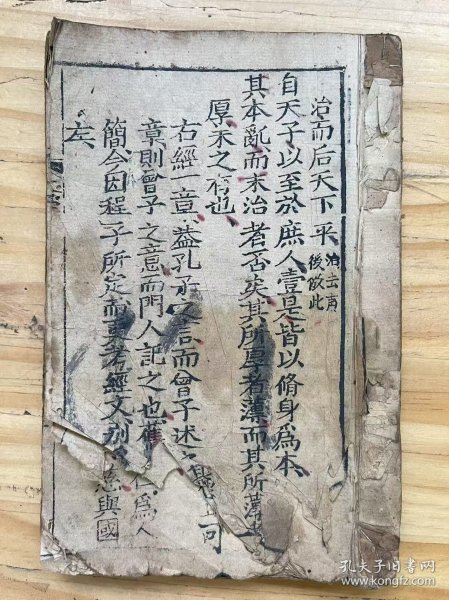 治而后天下平
治去声
後做此
自天子以至於庶人壹是皆以脩身為本
其本亂而末治者否矣其所厚者薄而其所薄者
厚未之有也
右經一章蓋孔子之言而曾子述之
章則曾子之意而門人記之也舊
簡今因程子所定而更考經文別
左
可
為人
與國
孔夫子旧书网
www.kongfz.com